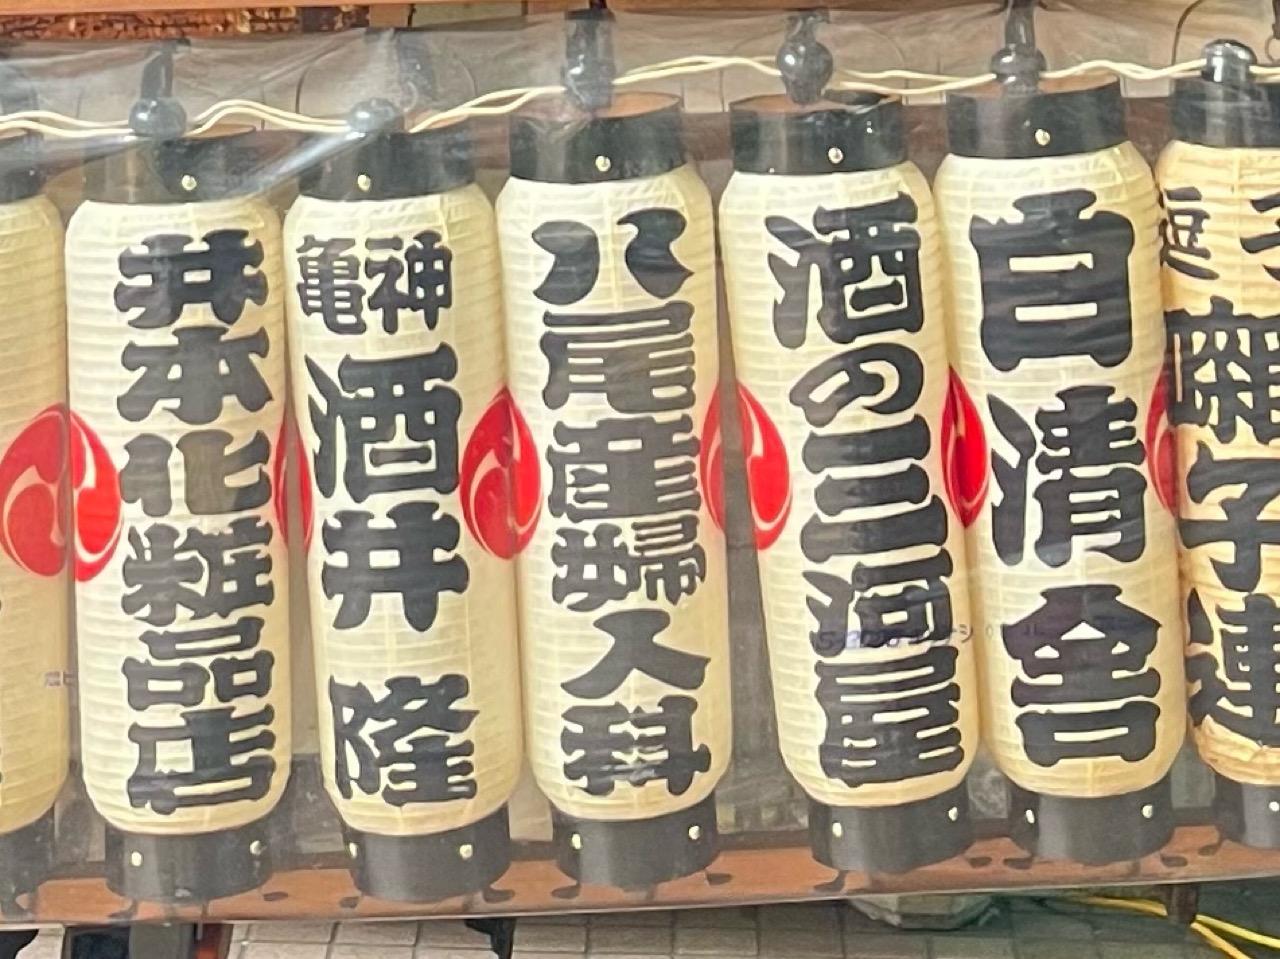 井本化粧品店
神亀
酒井 隆
八尾産婦人科
酒の三河屋
白清舎
囃子連